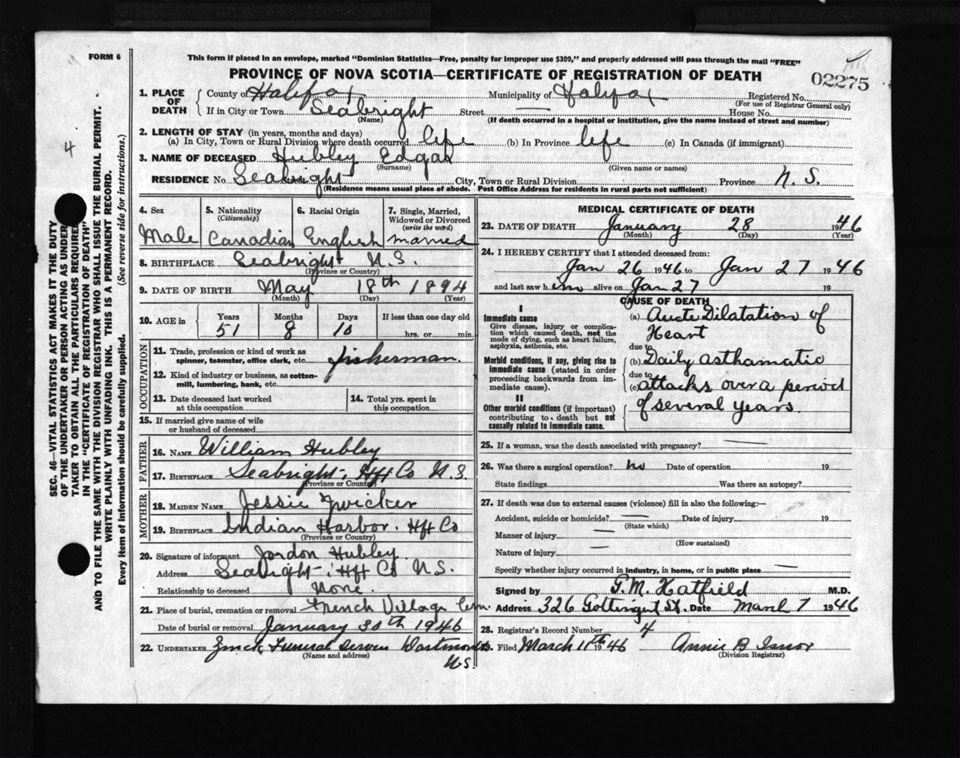 FORM 6
This form if placed in an envelope, marked "Dominion Statistics—Free, penalty for improper use $300," and properly addressed will pass through the mail "FREE"
PROVINCE OF NOVA SCOTIA—CERTIFICATE OF REGISTRATION OF DEATH
02275
1. PLACE OF DEATH
County of Halifax Municipality of Halifax Registered No.
(For use of Registrar General only)
If in City or Town Seabright Street — House No.
(Name) (If death occurred in a hospital or institution, give the name instead of street and number)
2. LENGTH OF STAY (in years, months and days)
(a) In City, Town or Rural Division where death occurred life (b) In Province life (c) In Canada (if immigrant)
3. NAME OF DECEASED Hubley Edgar
(Surname) (Given name or names)
RESIDENCE No. Seabright City, Town or Rural Division Province N.S.
(Residence means usual place of abode. Post Office Address for residents in rural parts not sufficient)
4. Sex
Male
5. Nationality
(Citizenship)
Canadian
6. Racial Origin
English
7. Single, Married, Widowed or Divorced
(write the word)
married
8. BIRTHPLACE Seabright N.S.
(Province or Country)
9. DATE OF BIRTH May 18th 1894
(Month) (Day) (Year)
10. AGE in Years Months Days If less than one day old
51 8 10 hrs. or min.
OCCUPATION
11. Trade, profession or kind of work as spinner, teamster, office clerk, etc. fisherman.
12. Kind of industry or business, as cotton-mill, lumbering, bank, etc.
13. Date deceased last worked at this occupation
14. Total yrs. spent in this occupation
15. If married give name of wife or husband of deceased
FATHER
16. NAME William Hubley
17. BIRTHPLACE Seabright - Hfx Co N.S.
(Province or Country)
MOTHER
18. MAIDEN NAME Jessie Zwicker
19. BIRTHPLACE Indian Harbor. Hfx Co
(Province or Country)
20. Signature of informant Jordon Hubley
Address Seabright - Hfx Co N.S.
Relationship to deceased None.
21. Place of burial, cremation or removal French Village Cem.
Date of burial or removal January 30th 1946
22. UNDERTAKER Zinck Funeral Dartmouth
(Name and address)
N.S.
MEDICAL CERTIFICATE OF DEATH
23. DATE OF DEATH January 28 1946
(Month) (Day) (Year)
24. I HEREBY CERTIFY that I attended deceased from:
Jan 26 1946 to Jan 27 1946
and last saw him alive on Jan 27 19
CAUSE OF DEATH
I
Immediate cause
Give disease, injury or complication which caused death, not the mode of dying, such as heart failure, asphyxia, asthenia, etc.
(a) Acute Dilatation of
Heart
due to
Morbid conditions, if any, giving rise to immediate cause (stated in order proceeding backwards from immediate cause).
(b) Daily Asthamatic
due to
(c) attacks over a period
of several years
II
Other morbid conditions (if important) contributing to death but not causally related to immediate cause.
25. If a woman, was the death associated with pregnancy? —
26. Was there a surgical operation? no Date of operation 19
State findings Was there an autopsy?
27. If death was due to external causes (violence) fill in also the following:—
Accident, suicide or homicide? — Date of injury 19
(State which)
Manner of injury —
(How sustained)
Nature of injury —
Specify whether injury occurred in industry, in home, or in public place
Signed by G.M. Hatfield M.D.
Address 326 Gottingen St. Date March 7 1946
28. Registrar's Record Number 4
Filed March 11th 1946 Annie B
(Division Registrar)
SEC. 46—VITAL STATISTICS ACT MAKES IT THE DUTY
OF THE UNDERTAKER OR PERSON ACTING AS UNDERTAKER TO OBTAIN ALL THE PARTICULARS REQUIRED
IN THE "CERTIFICATE OF REGISTRATION OF DEATH"
AND TO FILE THE SAME WITH THE DIVISION REGISTRAR WHO SHALL ISSUE THE BURIAL PERMIT.
WRITE PLAINLY WITH UNFADING INK. THIS IS A PERMANENT RECORD.
Every item of information should be carefully supplied. (See reverse side for instructions.)
4